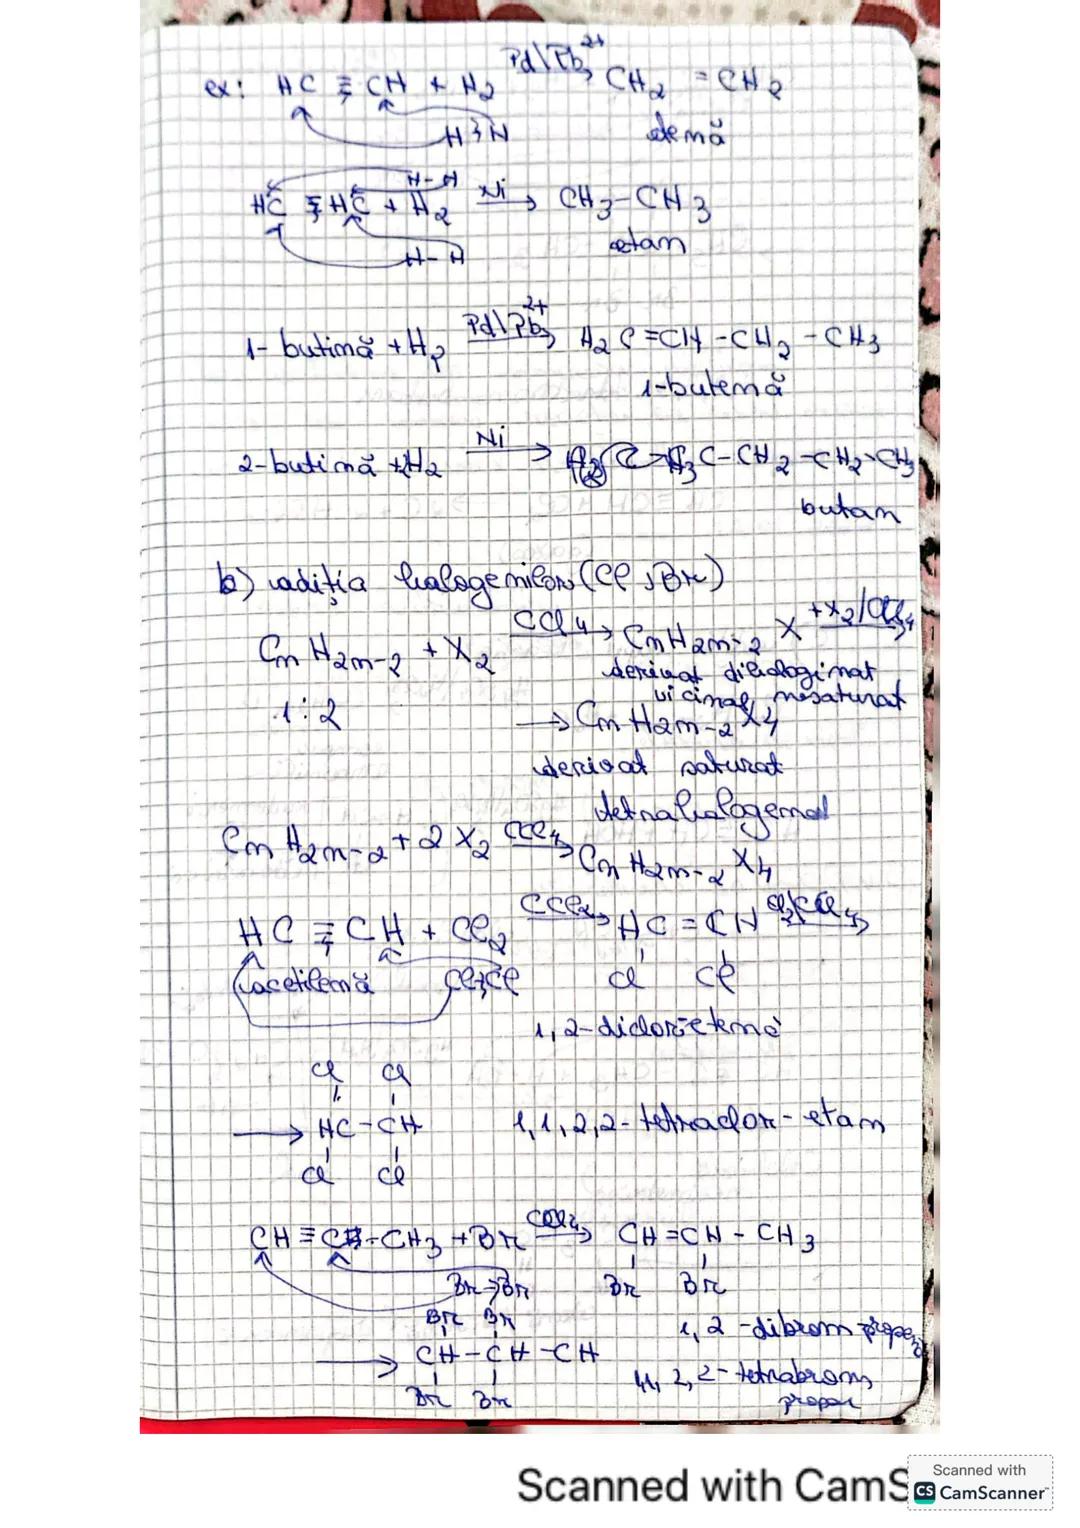 ex: HC ≡ CH + H2 Pd/Pb2+ → CH2 = CH2
H H etenă
H-H
HC ≡ HC + H2 Ni → CH3-CH3
H-H etan
1-butină + H2 Pd/Pb2+ → H2C=CH-CH2-CH3
1-butenă
2-butină + H2 Ni → H3C-CH2-CH2-CH3
butan
b) adiția halogenilor (Cl, Br)
CnH2n-2 + X2 CCl4 → CnH2n-2 X +X2/CCl4 →
derivat dihalogenat
vicinal nesaturat
1:2 → CnH2n-2X4
derivat saturat
tetrahalogenat
CnH2n-2 + 2X2 CCl4 → CnH2n-2X4
HC ≡ CH + Cl2 → HC = CH Cl2/CCl4 →
acetilenă Cl-Cl Cl Cl
1,2-diclor-etenă
Cl Cl
→ HC-CH 1,1,2,2-tetraclor-etan
Cl Cl
CH ≡ -CH3 + Br → CH=CH-CH3
Br Br Br Br
Br Br 1,2-dibrom
→ CH-CH-CH 2,2-tetrabrom
Br Br propan
Scanned with CamS
Scanned with
CS CamScanner